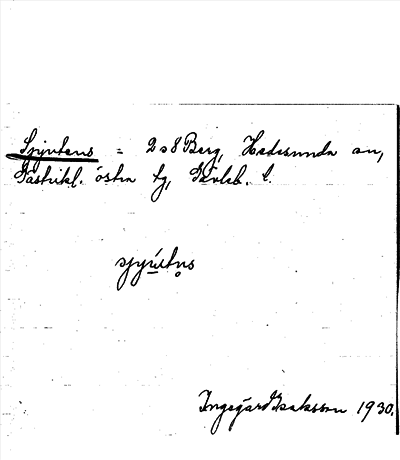 Sjyutens = 2 o 8 Berg, Hedesunda sn,
Gästrikl. östra tg, Gävleb. l.
Ingegärd Isaksson 1930.